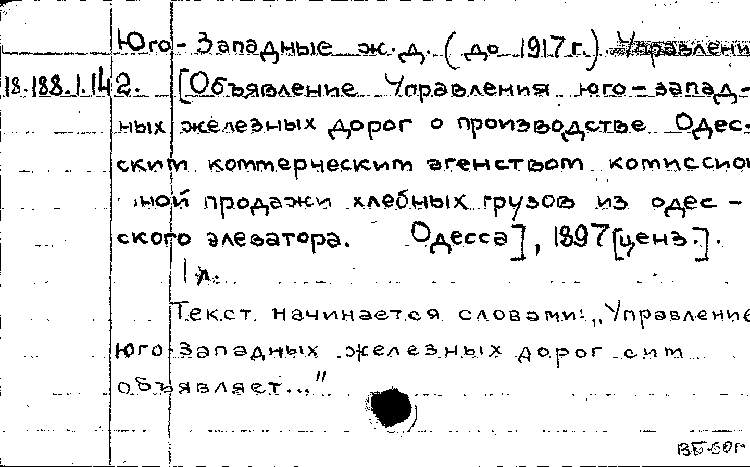 Юго-Западные ж.д. (до 1917 г.) Управлени
18.188.1.142. [Объявление Управления юго-запад-
ных железных дорог о производстве Одес-
ским коммерческим агенством комиссион
ной продажи хлебных грузов из одес-
ского элеватора. Одесса], 1897 [ценз.].
1 л.
Текст начинается словами: „Управление
Юго-Западных железных дорог сим
объявляет..."